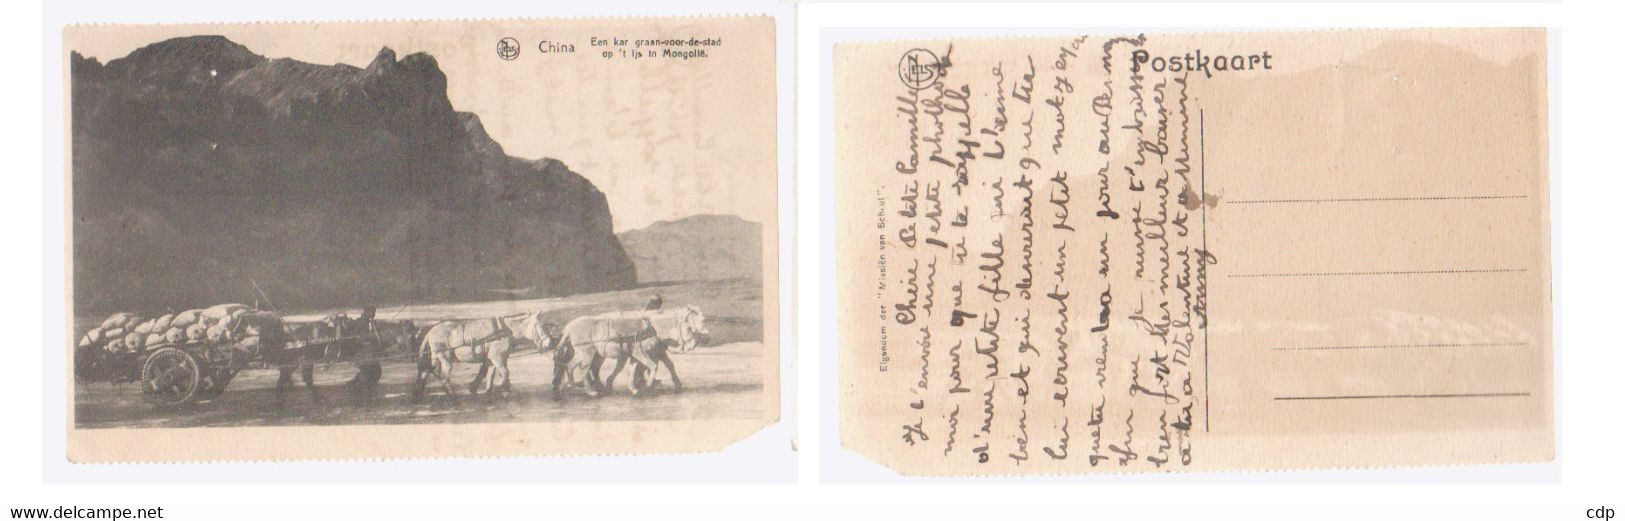 China
Een kar graan-voor-de-stad
op 't ijs in Mongolië.
Postkaart
Eigendom der "Missiën van Scheut".
Chérie Petite Camille
Je t'envoie une petite photo
moi pour que tu te rappelle
d'une petite fille qui t'aime
bien et qui demerait que tu
lui écrivent un petit mot
que tu viendras un jour
afin que je puisse t'embrasser
bien fort Mes meilleur baiser
a toi a Valentine et a
Jenny
www.delcampe.net
cdp